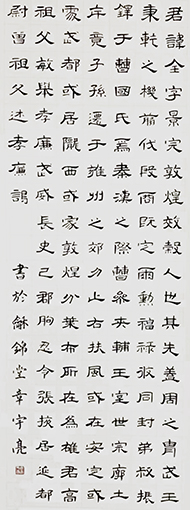 君諱全字景完敦煌效穀人也其先蓋周之胄武王
秉乾之機翦伐殷商既定爾勳福祿攸同封弟叔振
鐸于曹國氏焉秦漢之際曹參夾輔王室世宗廓土
斥竟子孫遷于雍州之郊分止右扶風或在安定或
處武都或居隴西或家敦煌分葉布所在為雄君高
祖父敏舉孝廉武威長史巴郡朐忍令張掖居延都
尉曾祖父述孝廉謁 書於龢錦堂辛宇亮